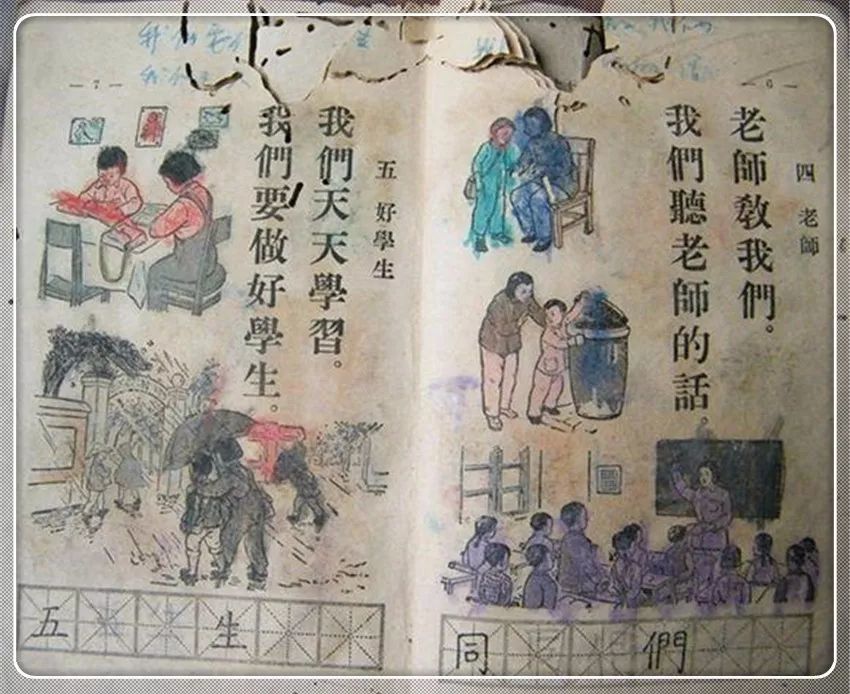 — 6 —
四 老師
老師敎我們。
我們聽老師的話。
同 們
— 7 —
我們要
我們
五 好學生
我們天天學習。
我們要做好學生。
五 生